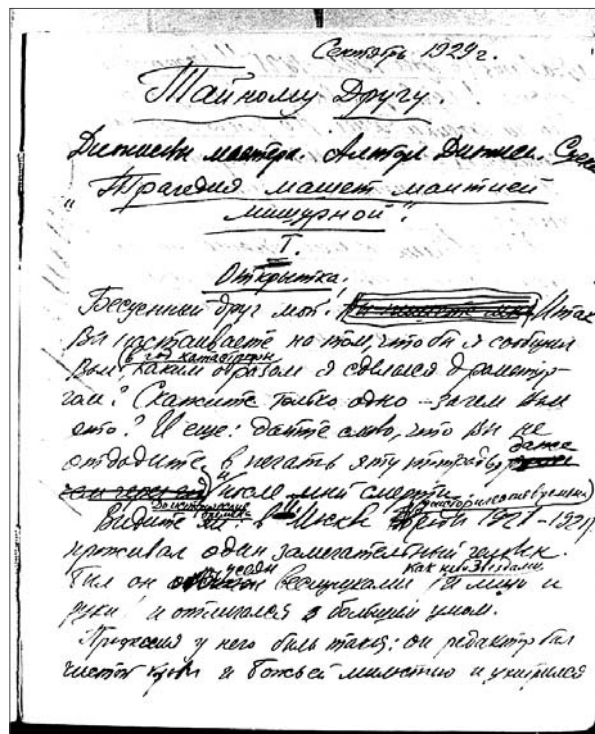 Сентябрь 1929 г.
Тайному Другу.
Дионисовы мастера. Алтарь Диониса. Сцена
"Трагедия машет мантией
мишурной".
I.
Открытка.
Бесценный друг мой! Итак
Вы настаиваете на том, чтобы я сообщил
в год катастрофы
Вам, каким образом я сделался драматур-
гом? Скажите только одно – зачем Вам
это? И еще: дайте слово, что Вы не
даже
отдадите в печать эту тетрадь,
и после моей смерти.
доисторические времена)
Видите ли: в Москве в 1921-192 г.
проживал один замечательный человек.
как небо звездами
Был он усеян веснущками и лицо и
руки и отличался большим умом.
Профессия у него была такая: он редактор был
чистой крови и божьей милостью и ухитрился